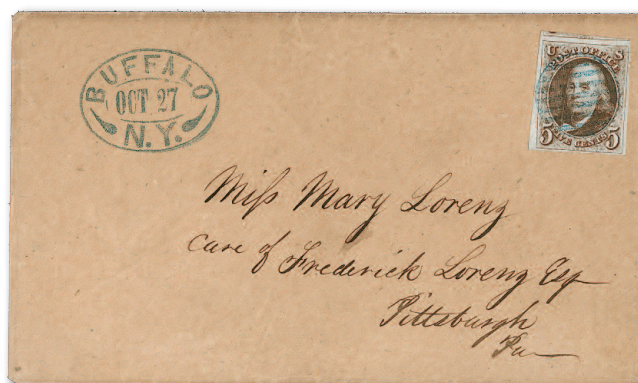 BUFFALO
OCT 27
N.Y.
U S
POST OFFICE
5 FIVE CENTS 5
Miſs Mary Lorenz
care of Frederick Lorenz Esq
Pittsburgh
Pa